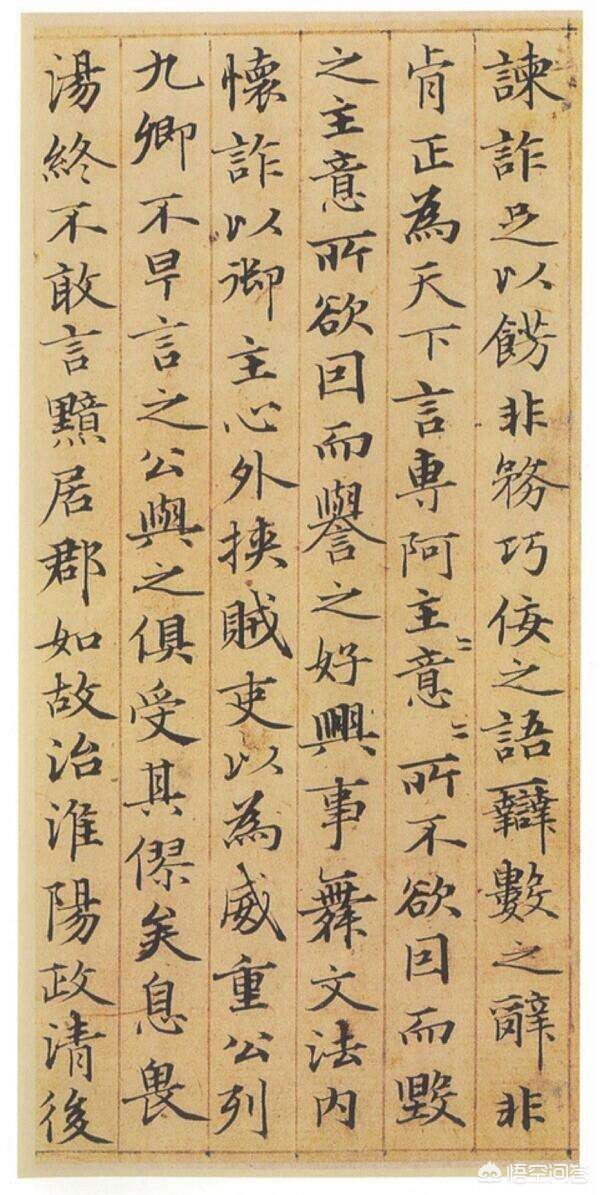 諫詐足以餝非務巧佞之語辯數之辭非
肯正為天下言專阿主〻意〻所不欲因而毀
之主意所欲因而譽之好興事舞文法內
懷詐以御主心外挾賊吏以為威重公列
九卿不早言之公與之俱受其僇矣息畏
湯終不敢言黯居郡如故治淮陽政清後
悟空问答